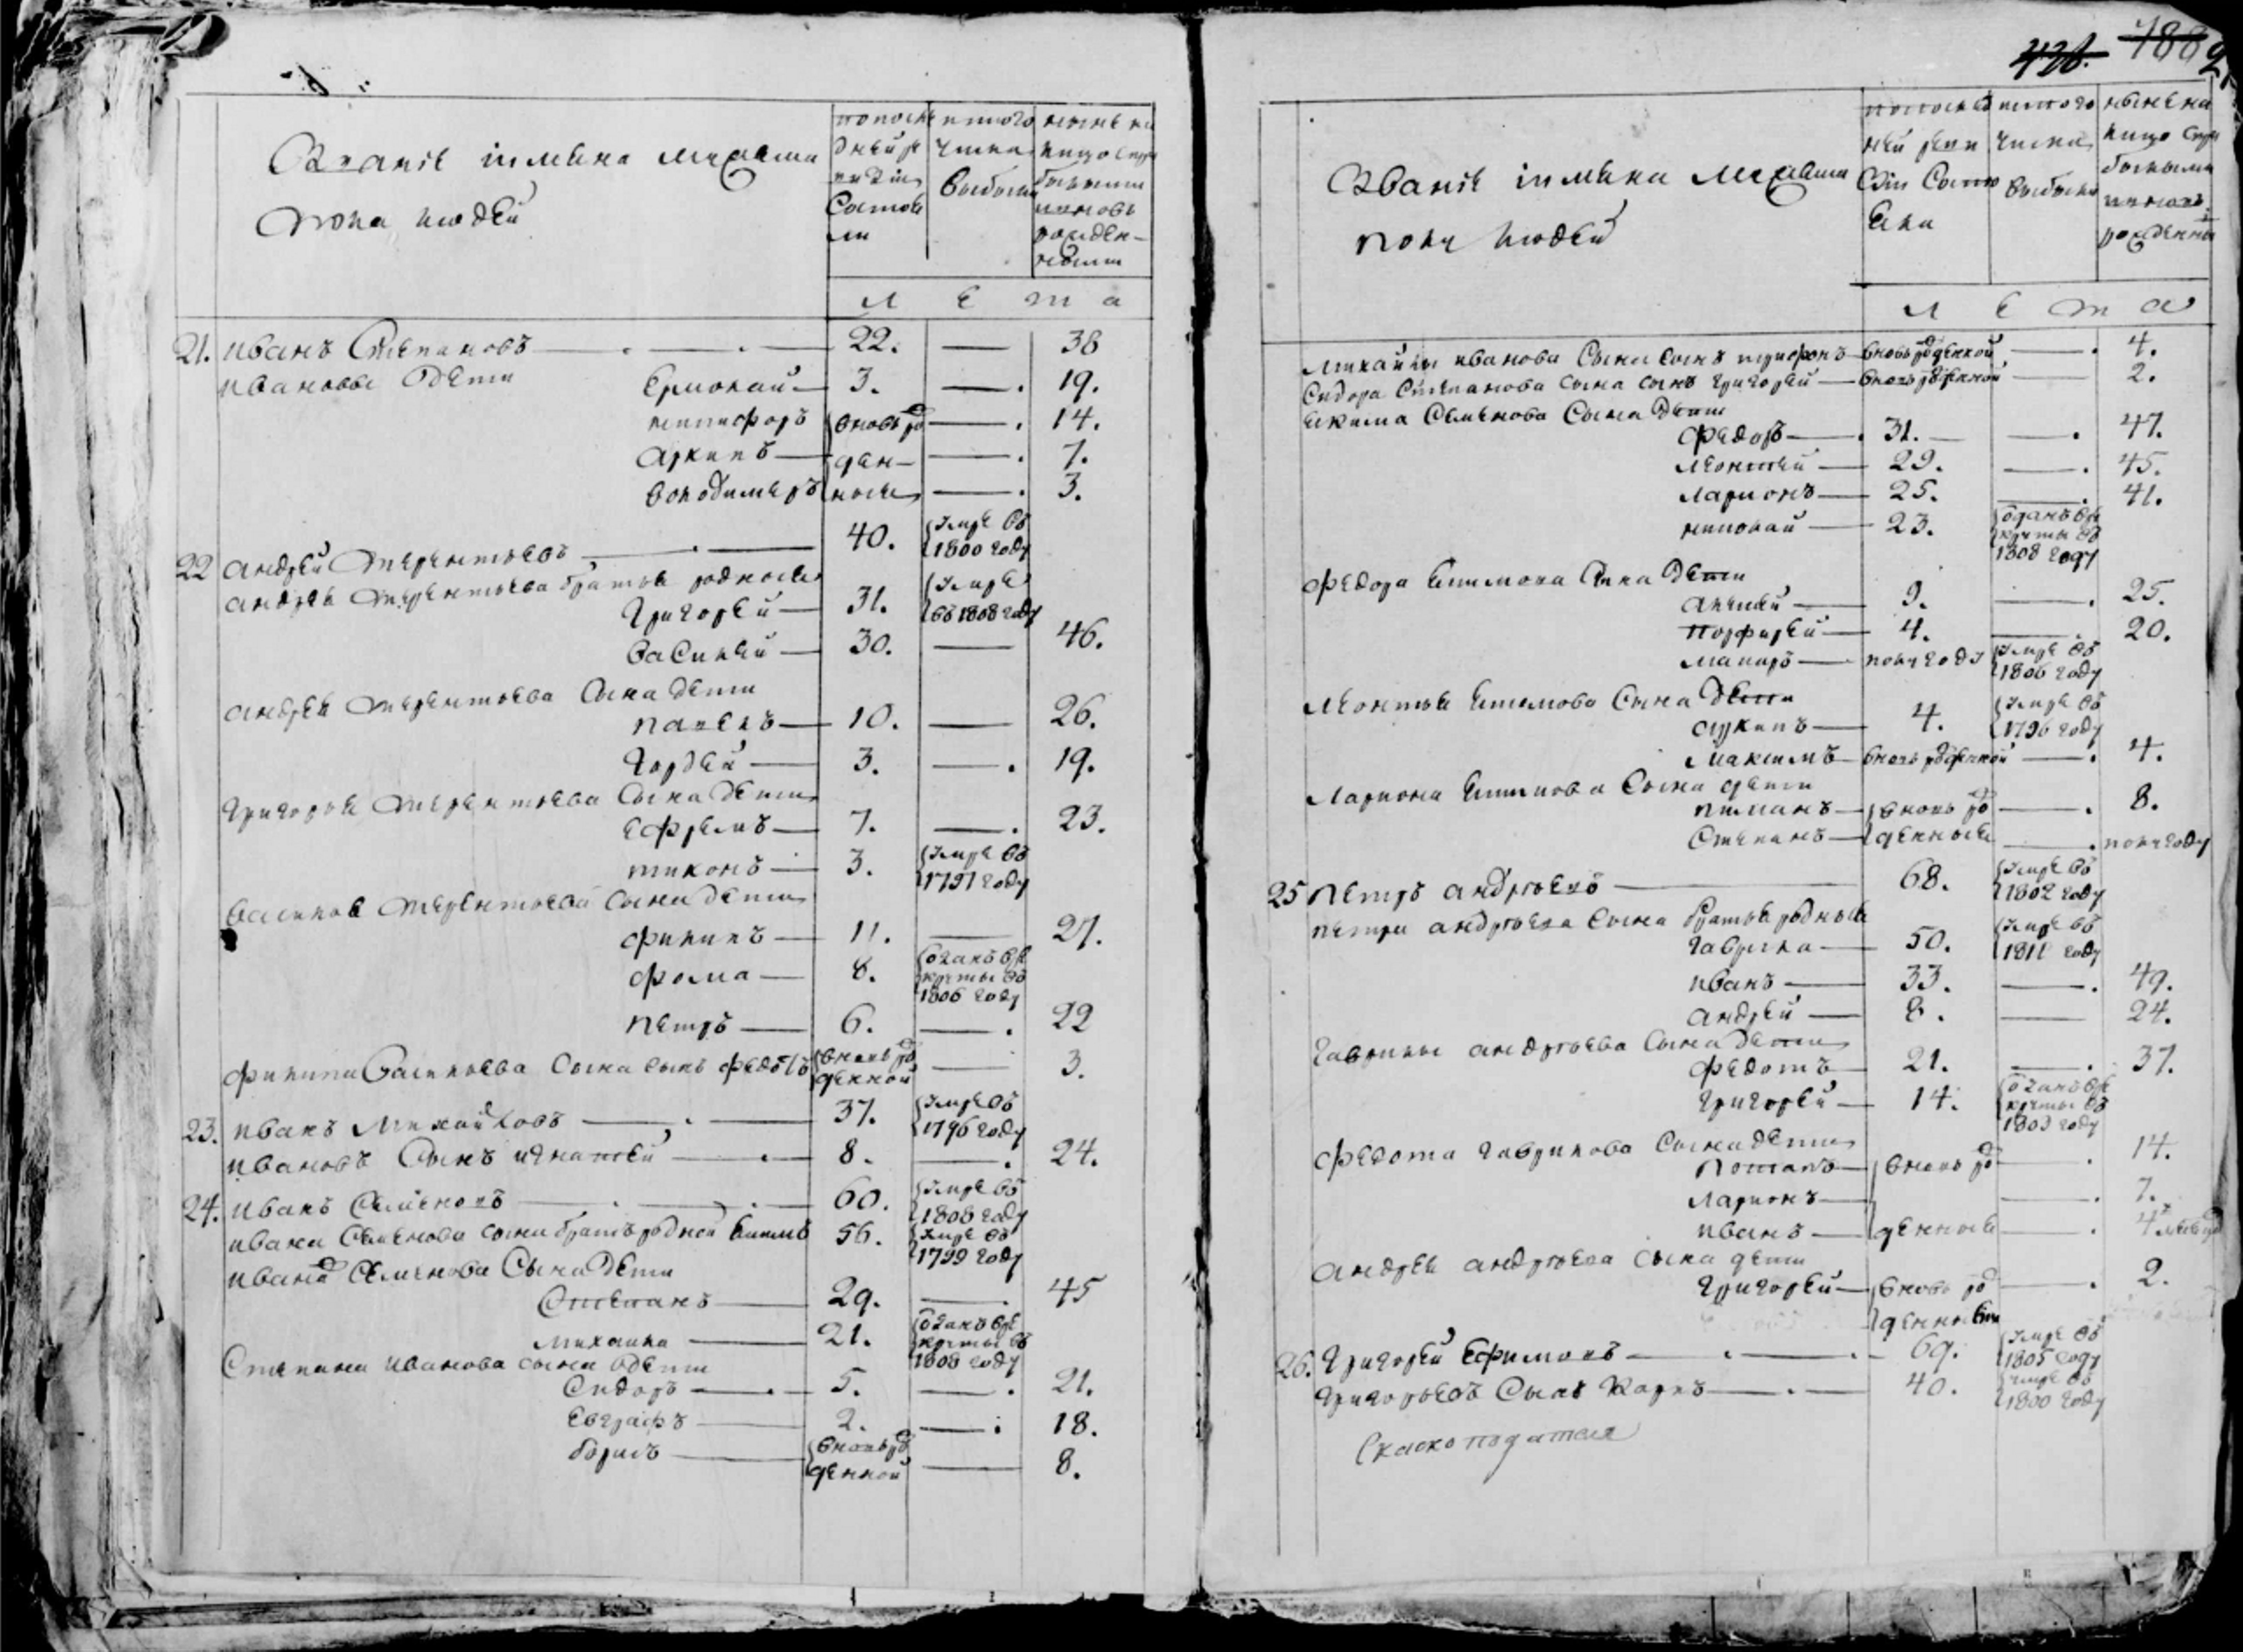 Званіе и имена мужеска
пола людей
по после
дней ре
визіи
состоя
ли
из того
числа
выбыло
ныне на
лицо с пр
былыми
и вновь
рожден
ными
Л Е т а
21. иванъ Степановъ 22. — 38
ивановы дети Ермолай 3. — 19.
никифоръ вновь ро — 14.
архипъ жден — 7.
володимеръ ные — 3.
22 андрей терентьевъ 40. умре въ 1800 году
андрея терентьева братья родные
григорей 31. умре въ 1808 году
василей 30. — 46.
андрея терентьева сына дети
павелъ 10. — 26.
гордей 3. — 19.
григорья терентьева сына дети
ефремъ 7. — 23.
тихонъ 3. умре въ 1797 году
василья терентьева сына дети
филипъ 11. — 27.
фома 8. отданъ в рекруты въ 1806 году
петръ 6. — 22
филипа васильева сына сынъ федотъ вновь рожденной — 3.
23. иванъ михайловъ 37. умре въ 1796 году
ивановъ сынъ игнатей 8. — 24.
24. иванъ семеновъ 60. умре въ 1808 году
ивана семенова сына братъ родной екимъ 56. умре въ 1799 году
ивана семенова сына дети
степанъ 29. — 45
михаила 21. отданъ в рекруты въ 1808 году
степана иванова сына дети
сидоръ 5. — 21.
евграфъ 2. — 18.
борисъ вновь рожденной — 8.
426. 188
Званіе и имена мужеска
пола людей
по послед
ней реви
зіи состо
яли
из того
числа
выбыло
ныне на
лицо с при
былыми
и вновь
рожденны
Л Е т а
михайлы иванова сына сынъ трифонъ вновь рожденной — 4.
сидора степанова сына сынъ григорей вновь рожденной — 2.
екима семенова сына дети
федоръ 31. — 47.
леонтей 29. — 45.
ларионъ 25. — 41.
николай 23. отданъ в рекруты въ 1808 году
федора екимова сына дети
алексей 9. — 25.
порфирей 4. — 20.
макаръ полугоду умре въ 1806 году
леонтья екимова сына дети
архипъ 4. умре въ 1796 году
максимъ вновь рожденной — 4.
лариона екимова сына дети
пиманъ вновь ро — 8.
степанъ жденные — полугоду
25 петръ андреевъ 68. умре въ 1802 году
петра андреева сына братья родные
гаврила 50. умре въ 1811 году
иванъ 33. — 49.
андрей 8. — 24.
гаврилы андреева сына дети
федотъ 21. — 37.
григорей 14. отданъ в рекруты въ 1803 году
федота гаврилова сына дети
потапъ вновь ро — 14.
ларионъ — 7.
иванъ жденные — 4
андрея андреева сына дети
григорей вновь ро — 2.
жденны
26. григорей ефимовъ 69. умре въ 1805 году
григорьевъ сынъ карпъ 40. умре въ 1800 году